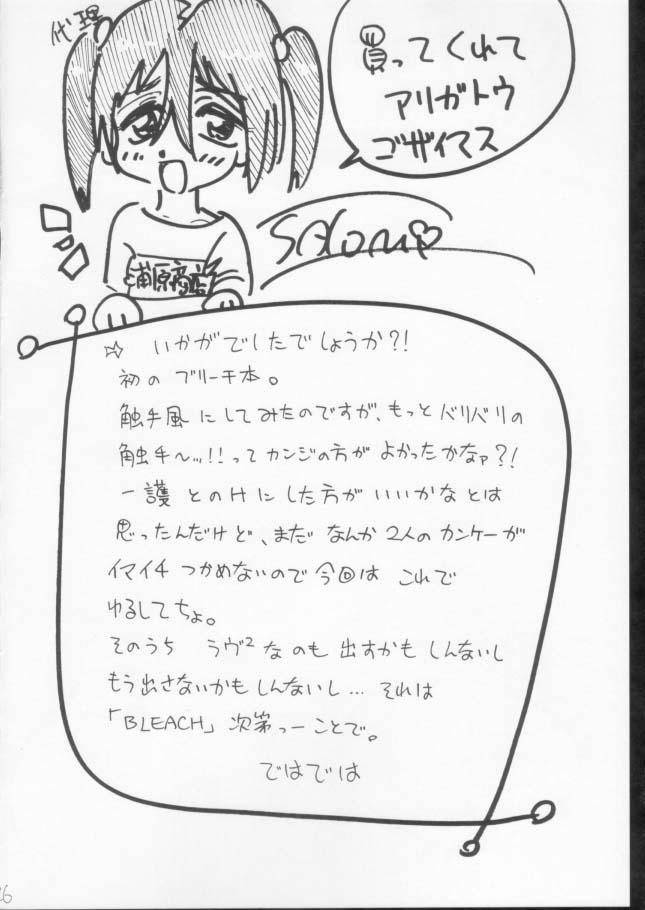 代理
買ってくれて
アリガトウ
ゴザイマス
浦原商店
☆ いかがでしたでしょうか?!
初の ブリーチ本。
触手風 にしてみたのですが、もっとバリバリの
触手〜ッ!!ってカンジの方が よかったかなァ?!
一護 とのHにした方が いいかな とは
思ったんだけど、まだ なんか 2人のカンケーが
イマイチ つかめないので 今回は これで
ゆるしてちょ。
そのうち ラヴ²なのも 出すかも しんないし
もう出さないかも しんないし… それは
「BLEACH」次第っーことで。
ではでは
26